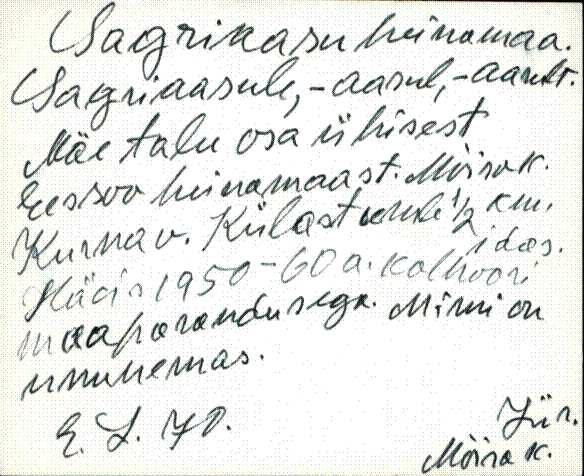 Sagrikasu heinamaa.
Sagriaasule, -aasul, -aasult.
Mäe talu osa ühisest
Eessoo heinamaast. Mõisa k.
Kurna v. Külast umb. 1/2 km.
idas.
Hävis 1950-60 a. kolhoosi
maaparandusega. Nimi on
ununemas.
E. L. 70.
Jür.
Mõisa k.